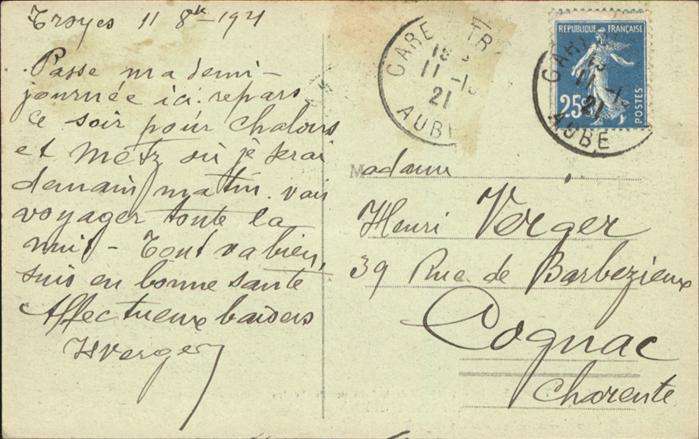 Troyes 11 8bre 1921
Passe ma demi-
journée ici. repars
ce soir pour Chalons
et Metz où je serai
demain matin. vais
voyager toute la
nuit - Tout va bien,
suis en bonne santé
Affectueux baisers
HVerger
GARE TR
11-10
21
AUBE
REPUBLIQUE FRANÇAISE
25
POSTES
GARE
11-10
21
AUBE
Madame
Henri Verger
39 Rue de Barbezieux
Cognac
Charente